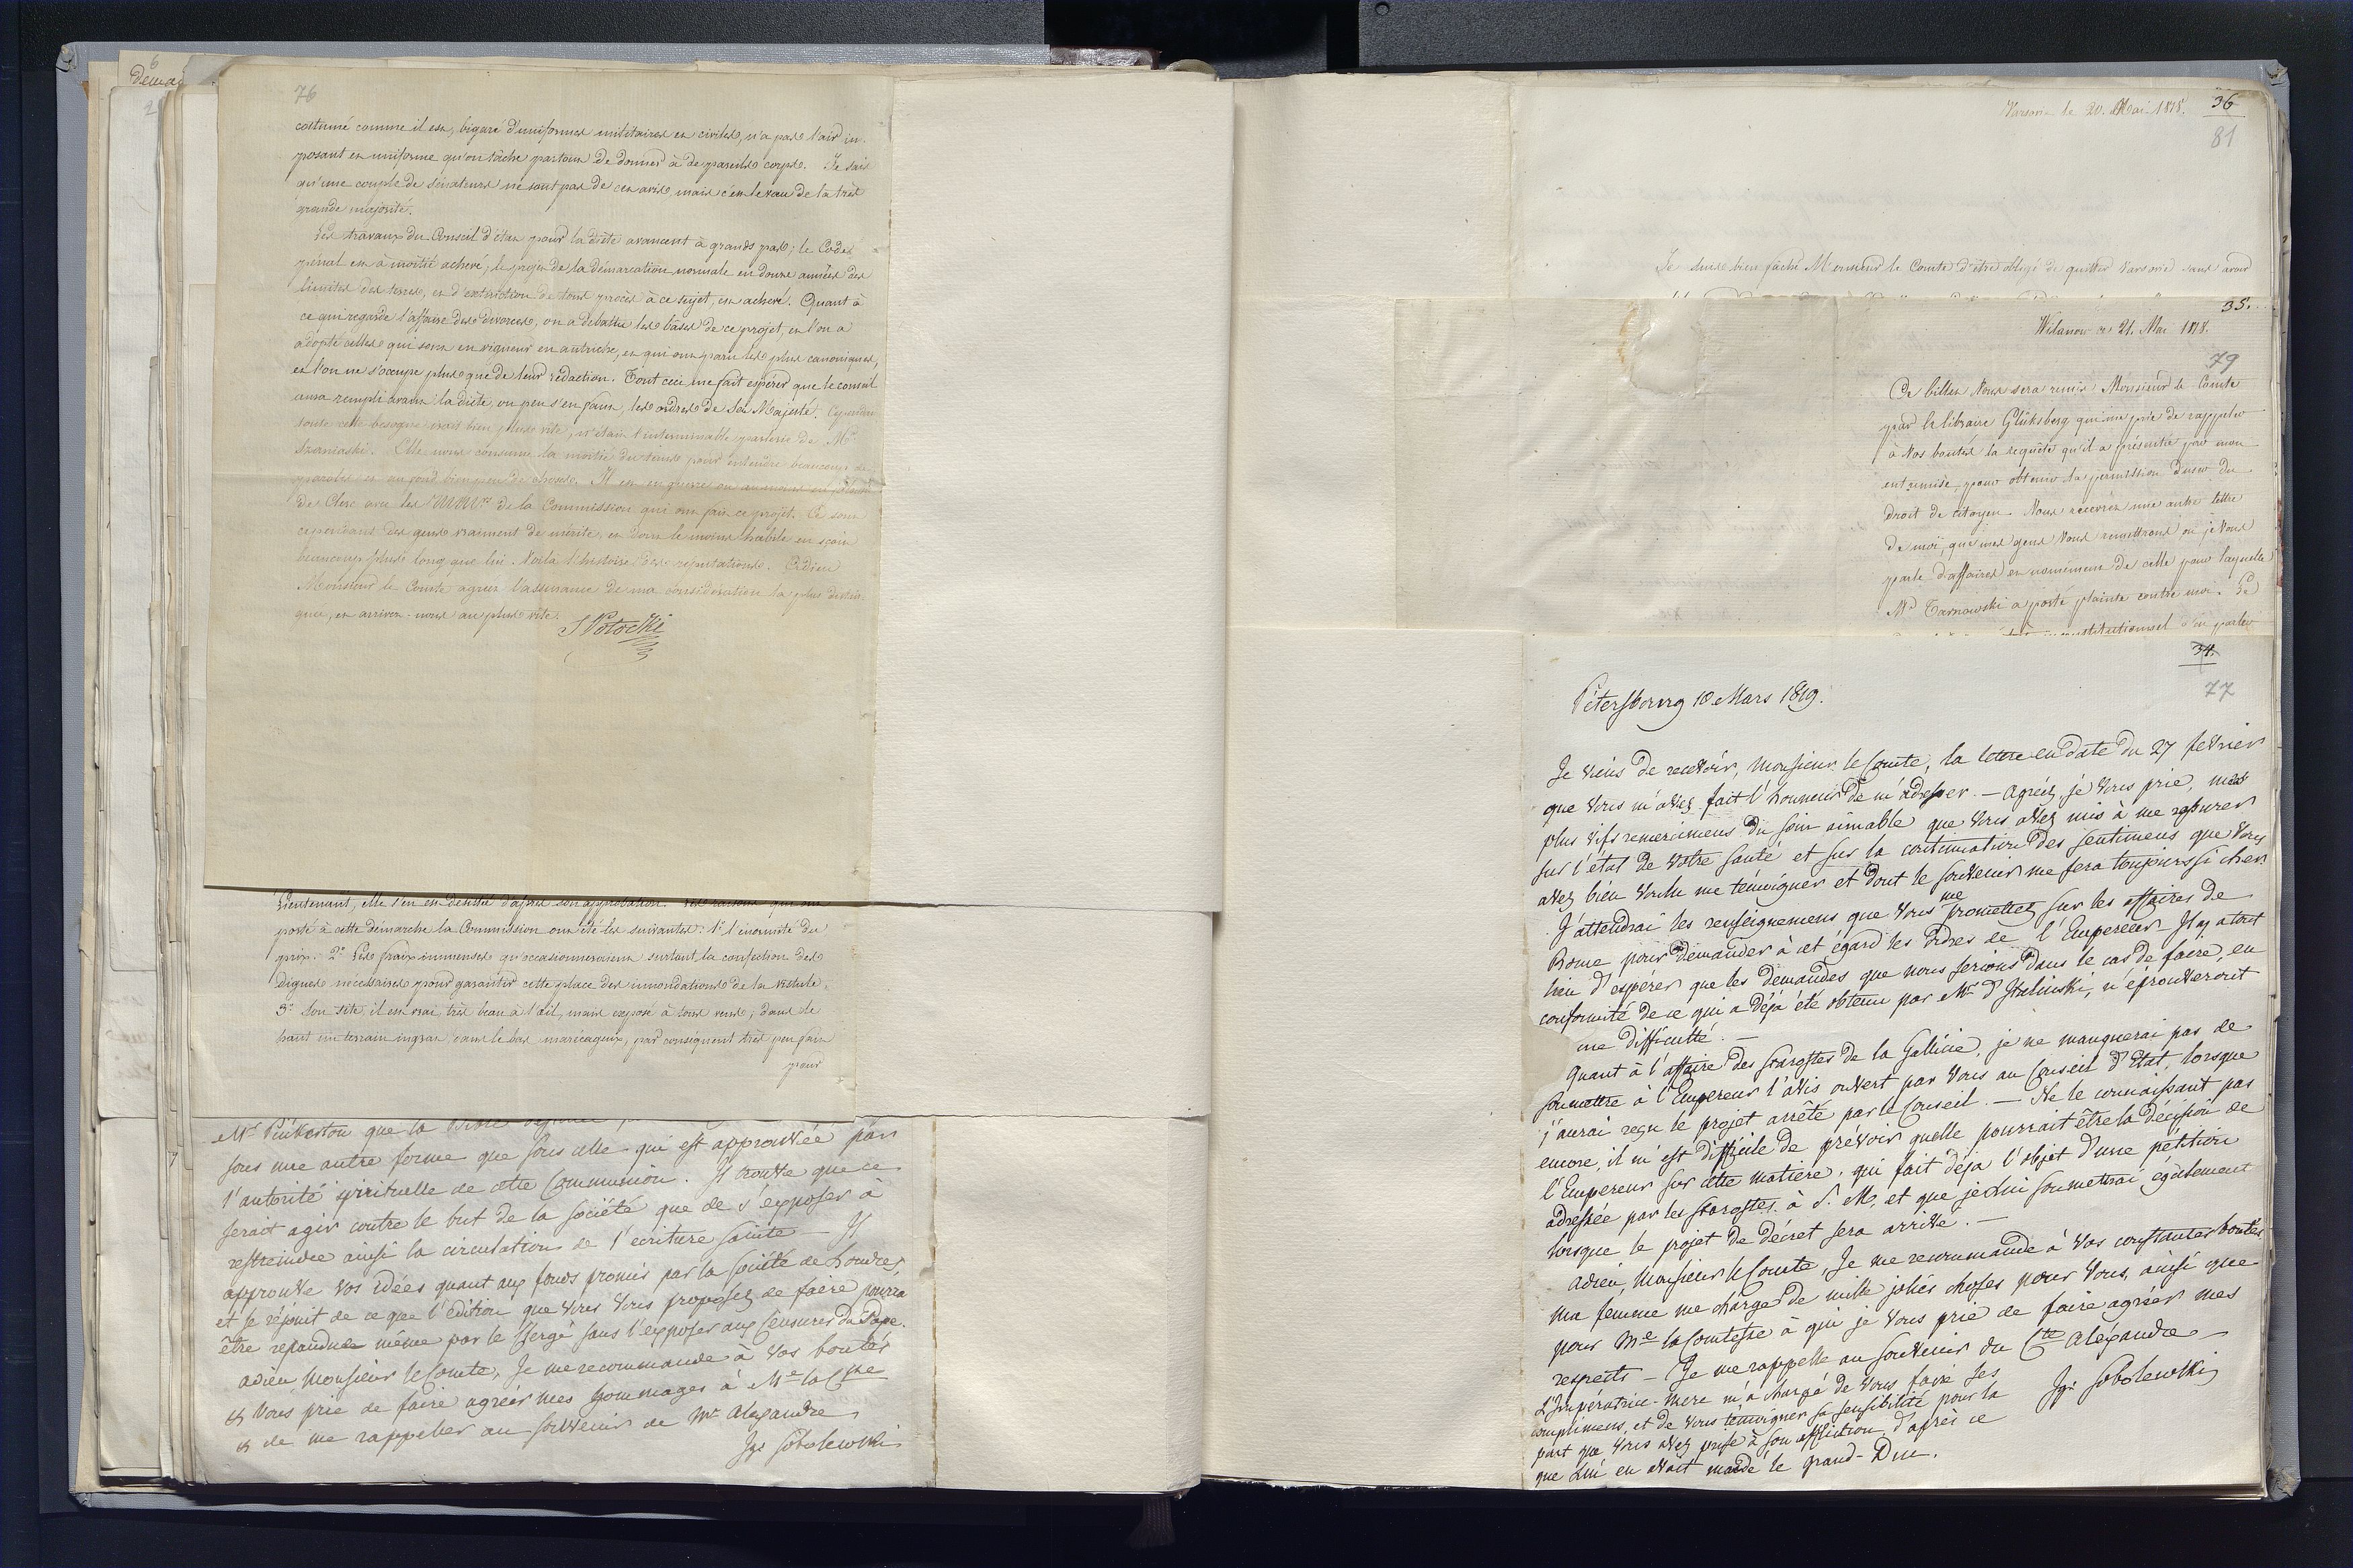 6
Demand
76
costumé comme il est, bigaré d'uniformes militaires et civiles, n'a pas l'air im-
posant et uniforme qu'on tâche partout de donner à de pareils corps. Je sais
qu'une couple de sénateurs ne sont pas de cet avis mais c'est le vœu de la très
grande majorité.
Les travaux du Conseil d'état pour la diète avancent à grands pas; le Code
pénal est à moitié achevé, le projet de la démarcation normale en douze années des
limites des terres, et d'extinction de tous procès à ce sujet, est achevé. Quant à
ce qui regarde l'affaire des divorces, on a debattu les bases de ce projet, et l'on a
adopté celles qui sont en vigueur en autriche, et qui ont paru les plus canoniques,
et l'on ne s'occupe plus que de leur rédaction. Tout ceci me fait espérer que le conseil
aura rempli avant la diète, ou peu s'en faut, les ordres de Sa Majesté. Cependant
toute cette besogne iroit bien plus vite, n'était l'interminable parlerie de Mr
Szaniaski. Elle nous consume la moitié du tems pour entendre beaucoup de
paroles et au fond bien peu de choses. Il est en guerre ou au moins en
de Clerc avec les MMrs de la Commission qui ont fait ce projet. Ce sont
cependant des gens vraiment de mérite et dont le moins habile en scait
beaucoup plus long que lui. Voilà l'histoire des reputations. Adieu
Monsieur le Comte agreez l'assurance de ma considération la plus distin-
guée, et arrivez-nous au plus vite.
S Potocki
Lieutenant, elle s'en est desisté d'après son approbation. Les raisons qui ont
porté à cette démarche la Commission ont été les suivantes: 1° l'énormité du
prix. 2° Les fraix immenses qu'occasionneroient surtout la confection des
Digues nécessaires pour garantir cette place des innondations de la vistule.
3° Son site, il est vrai, très beau à l'œil, mais exposé à tous vents, dans le
haut un terrain ingrat, dans le bas marécageux, par consequent très peu fait
pour
Mr Pinkerton que la Bible
sous une autre forme que sous celle qui est approuvée par
l'autorité spirituelle de cette Communion. Il trouve que ce
serait agir contre le but de la société que de s'exposer à
restreindre ainsi la circulation de l'écriture sainte — Il
approuve vos idées quant aux fonds promis par la société de Londres,
et se réjouit de ce que l'édition que Vous Vous proposez de faire pourra
être repandue même par le Clergé sans l'exposer aux Censures du Pape.
adieu Monsieur le Comte, Je me recommande à Vos bontés
et Vous prie de faire agréer mes hommages à Me la Ctesse
et de me rappeller au souvenir de Mr Alexandre
Ign Sobolewski
Varsovie le 20. Mai 1818.
36
81
Je suis bien fâché Monsieur le Comte d'être obligé de quitter Varsovie sans avoir
35.
Wilanow ce 21. Mai 1818.
79
Ce billet Vous sera remis Monsieur le Comte
par le libraire Glüksberg qui me prie de rappeler
à Vos bontés la requête qu'il a présentée par mon
entremise, pour obtenir la permission d'user du
droit de citoyen. Vous recevrez une autre lettre
de moi, que mes gens Vous remettront où je Vous
parle d'affaires et nommément de celle pour laquelle
Mr Tarnowski a porté plainte contre moi. Le
constitutionnel d'en parler
34.
77
Pétersbourg 10 Mars 1819.
Je viens de recevoir, Monsieur le Comte, la lettre en date du 27 fevrier
que Vous m'avez fait l'honneur de m'adresser. — Agréez, je Vous prie, mes
plus vifs remercimens du soin aimable que Vous avez mis à me rassurer
sur l'état de Votre santé et sur la continuation des sentimens que Vous
avez bien voulu me témoigner et dont le souvenir me sera toujours si cher
J'attendrai les renseignemens que Vous me promettez sur les affaires de
Rome pour demander à cet égard les ordres de l'Empereur. Il y a tout
lieu d'espérer que les demandes que nous serions dans le cas de faire, en
conformité de ce qui a déjà été obtenu par Mr d'Italinski, n'éprouveront
une difficulté. —
Quant à l'affaire des starostes de la Gallicie, je ne manquerai pas de
soumettre à l'Empereur l'avis ouvert par Vous au Conseil d'Etat, lorsque
j'aurai reçu le projet arrêté par le Conseil. — Ne le connaissant pas
encore, il m'est difficile de prévoir quelle pourrait être la décision de
l'Empereur sur cette matière, qui fait déja l'objet d'une petition
adressée par les starostes à S. M. et que je lui soumettrai également
lorsque le projet de décret sera arrivé. —
Adieu, Monsieur le Comte, Je me recommande à Vos constantes bontés
Ma femme me charge de mille jolies choses pour Vous, ainsi que
pour Me la Comtesse à qui je Vous prie de faire agréer mes
respects — Je me rappelle au souvenir du Cte Alexandre —
Ign Sobolewski
L'Impératrice-Mere m'a chargé de Vous faire ses
complimens, et de Vous témoigner sa sensibilité pour la
part que Vous avez prise à son affliction, d'après ce
que Lui en avait mandé le Grand-Duc.